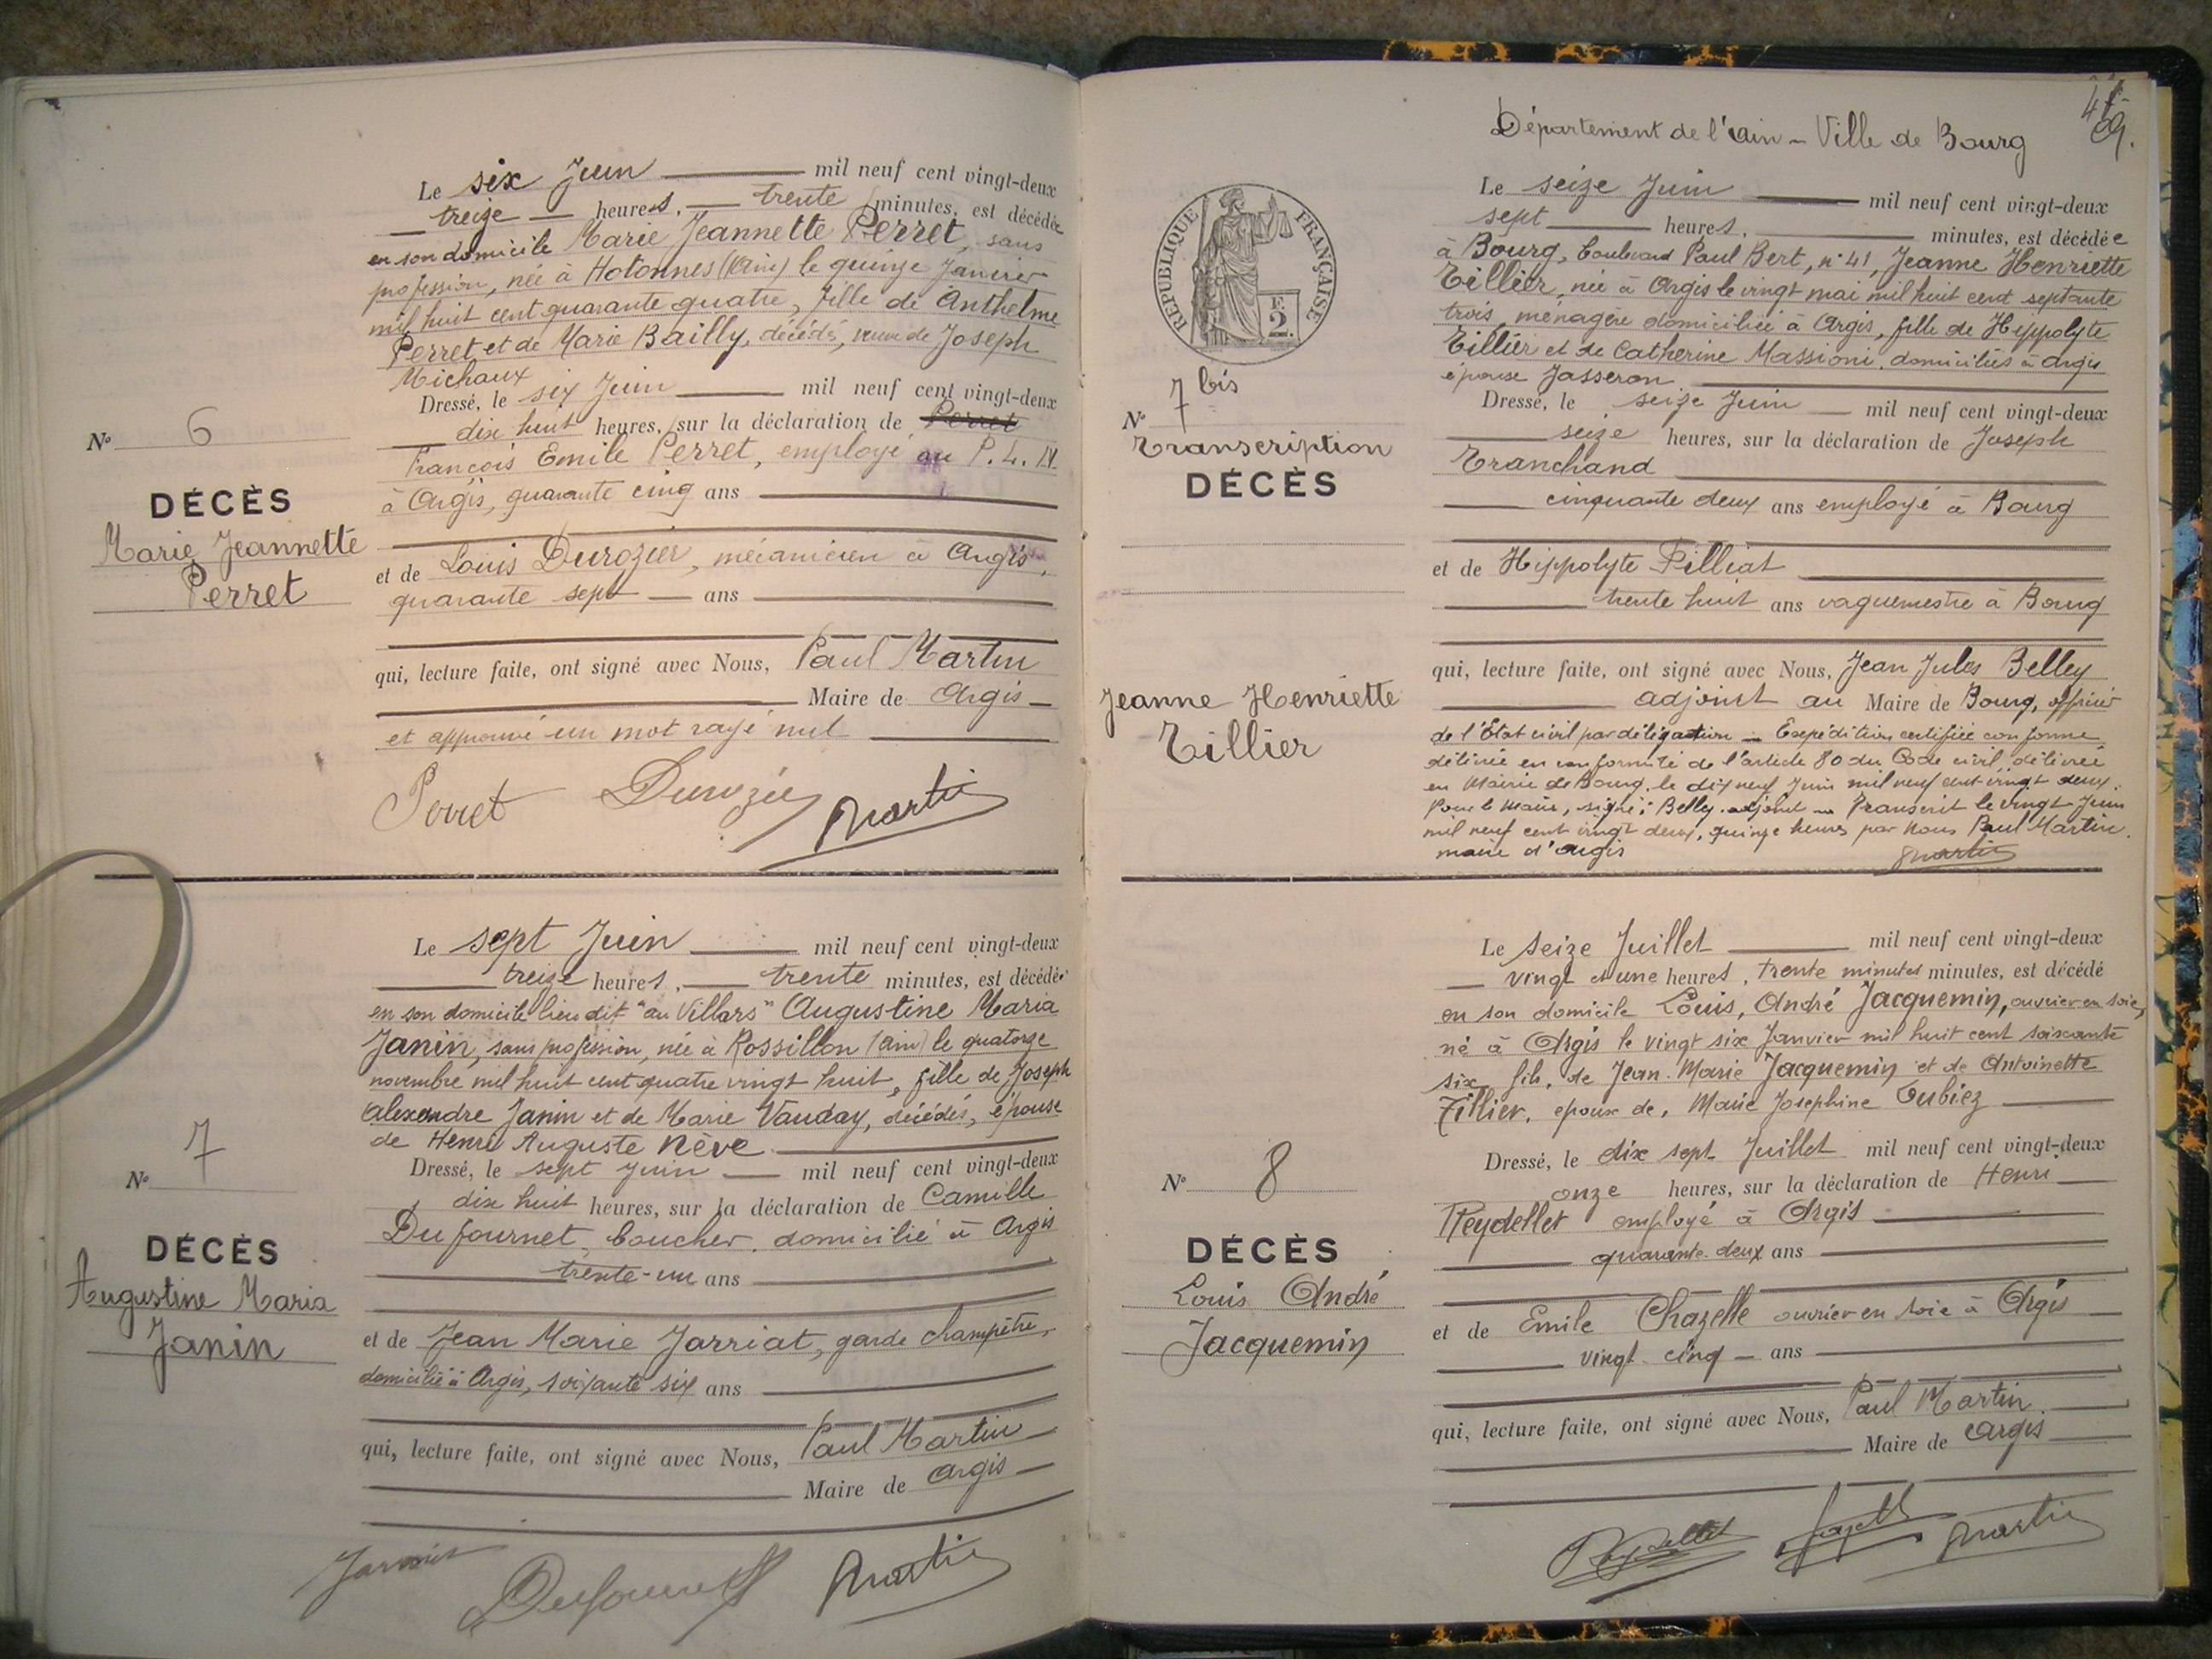 Le six Juin mil neuf cent vingt-deux
treize heures, trente minutes, est décédée
en son domicile Marie Jeannette Perret, sans
profession, née à Hotonnes (Ain) le quinze Janvier
mil huit cent quarante quatre, fille de Anthelme
Perret et de Marie Bailly, décédés, veuve de Joseph
Michaux
Dressé, le six Juin mil neuf cent vingt-deux
dix huit heures, sur la déclaration de Perret
François Emile Perret, employé au P.L.M.
à Argis, quarante cinq ans
et de Louis Durozier, mécanicien à Argis,
quarante sept ans
qui, lecture faite, ont signé avec Nous, Paul Martin
Maire de Argis
et approuvé un mot rayé nul
Perret Durozier Martin
N° 6
DÉCÈS
Marie Jeannette
Perret
Le sept Juin mil neuf cent vingt-deux
treize heures, trente minutes, est décédée
en son domicile lieu dit "au Villars" Augustine Maria
Janin, sans profession, née à Rossillon (Ain) le quatorze
novembre mil huit cent quatre vingt huit, fille de Joseph
Alexandre Janin et de Marie Vauday, décédés, épouse
de Henri Auguste Nève
Dressé, le sept juin mil neuf cent vingt-deux
dix huit heures, sur la déclaration de Camille
Dufournet, boucher, domicilié à Argis
trente-un ans
et de Jean Marie Jarriat, garde champêtre,
domicilié à Argis, soixante six ans
qui, lecture faite, ont signé avec Nous, Paul Martin
Maire de Argis
Jarriat Dufournet Martin
N° 7
DÉCÈS
Augustine Maria
Janin
Département de l'Ain - Ville de Bourg
Le seize Juin mil neuf cent vingt-deux
sept heures, minutes, est décédée
à Bourg, boulevard Paul Bert, n° 41, Jeanne Henriette
Tillier, née à Argis le vingt mai mil huit cent septante
trois, ménagère domiciliée à Argis, fille de Hippolyte
Tillier et de Catherine Massioni, domiciliés à Argis
épouse Jasseron
Dressé, le seize Juin mil neuf cent vingt-deux
seize heures, sur la déclaration de Joseph
Tranchand
cinquante deux ans employé à Bourg
et de Hippolyte Pilliat
trente huit ans vaguemestre à Bourg
qui, lecture faite, ont signé avec Nous, Jean Jules Belley
adjoint au Maire de Bourg, officier
de l'Etat civil par délégation - Expédition certifiée conforme
délivrée en conformité de l'article 80 du Code civil, délivrée
en Mairie de Bourg, le dix neuf Juin mil neuf cent vingt deux.
Pour le Maire, signé: Belley adjoint - Transcrit le vingt Juin
mil neuf cent vingt deux, quinze heures par Nous Paul Martin,
maire d'Argis Martin
RÉPUBLIQUE FRANÇAISE
2 F.
N° 7 bis
Transcription
DÉCÈS
Jeanne Henriette
Tillier
Le seize Juillet mil neuf cent vingt-deux
vingt et une heures, trente minutes minutes, est décédé
en son domicile Louis, André Jacquemin, ouvrier en soie,
né à Argis le vingt six Janvier mil huit cent soixante
six, fils, de Jean-Marie Jacquemin et de Antoinette
Tillier, époux de, Marie Josephine Cubiez
Dressé, le dix sept Juillet mil neuf cent vingt-deux
onze heures, sur la déclaration de Henri
Reydellet employé à Argis
quarante-deux ans
et de Emile Chazelle ouvrier en soie à Argis
vingt-cinq ans
qui, lecture faite, ont signé avec Nous, Paul Martin
Maire de Argis
Reydellet Chazelle Martin
N° 8
DÉCÈS
Louis André
Jacquemin